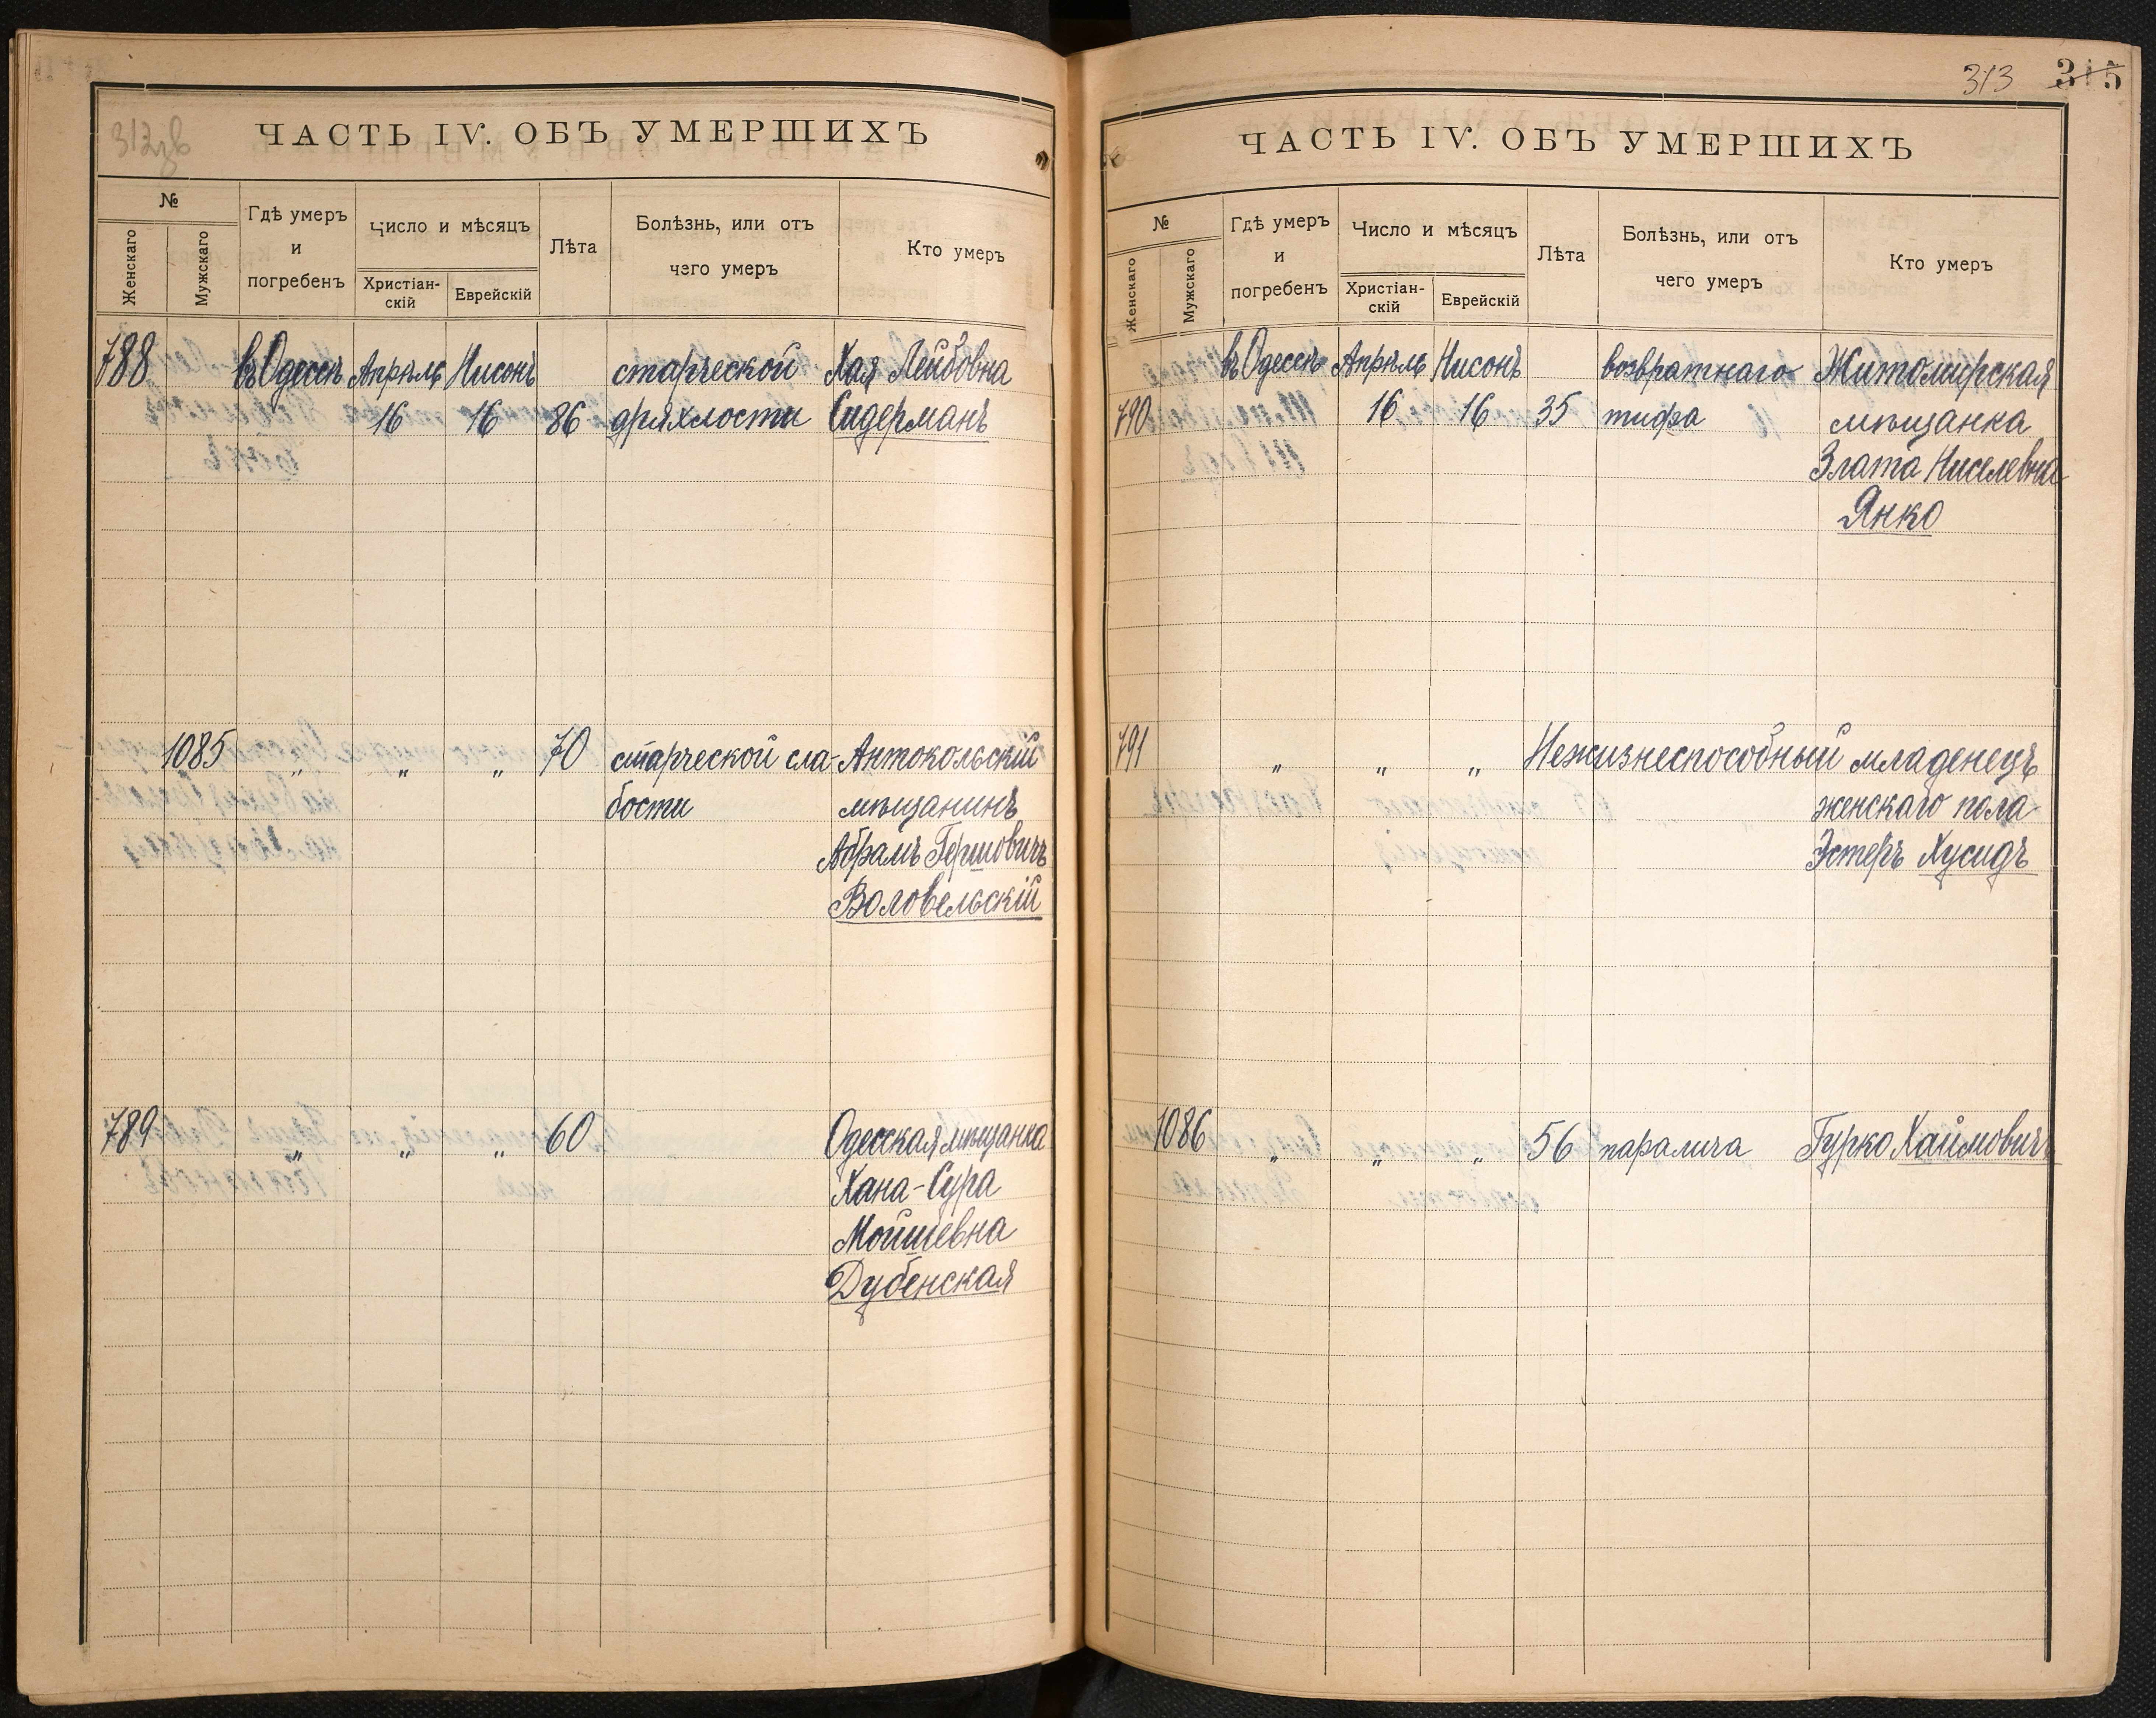 312 об
ЧАСТЬ IV. ОБЪ УМЕРШИХЪ
№
Женскаго
Мужскаго
Гдѣ умеръ
и
погребенъ
Число и мѣсяцъ
Христіан-
скій
Еврейскій
Лѣта
Болѣзнь, или отъ
чего умеръ
Кто умеръ
788 въ Одессѣ Апрѣль Нисонъ старческой Хая Лейбовна
16 16 86 дряхлости Сидерманъ
1085 „ „ „ 70 старческой сла- Антокольскій
бости мѣщанинъ
Абрамъ Гершовичъ
Воловельскій
789 „ „ „ 60 Одесская мѣщанка
Хана-Сура
Мойшевна
Дубенская
313 315
ЧАСТЬ IV. ОБЪ УМЕРШИХЪ
№
Женскаго
Мужскаго
Гдѣ умеръ
и
погребенъ
Число и мѣсяцъ
Христіан-
скій
Еврейскій
Лѣта
Болѣзнь, или отъ
чего умеръ
Кто умеръ
въ Одессѣ Апрѣль Нисонъ возвратнаго Житомирская
790 16 16 35 тифа мѣщанка
Злата Ниселевна
Янко
791 „ „ „ Нежизнеспособный младенецъ
женскаго пола
Эстеръ Хусидъ
1086 „ „ „ 56 паралича Гурко Хаимовичъ